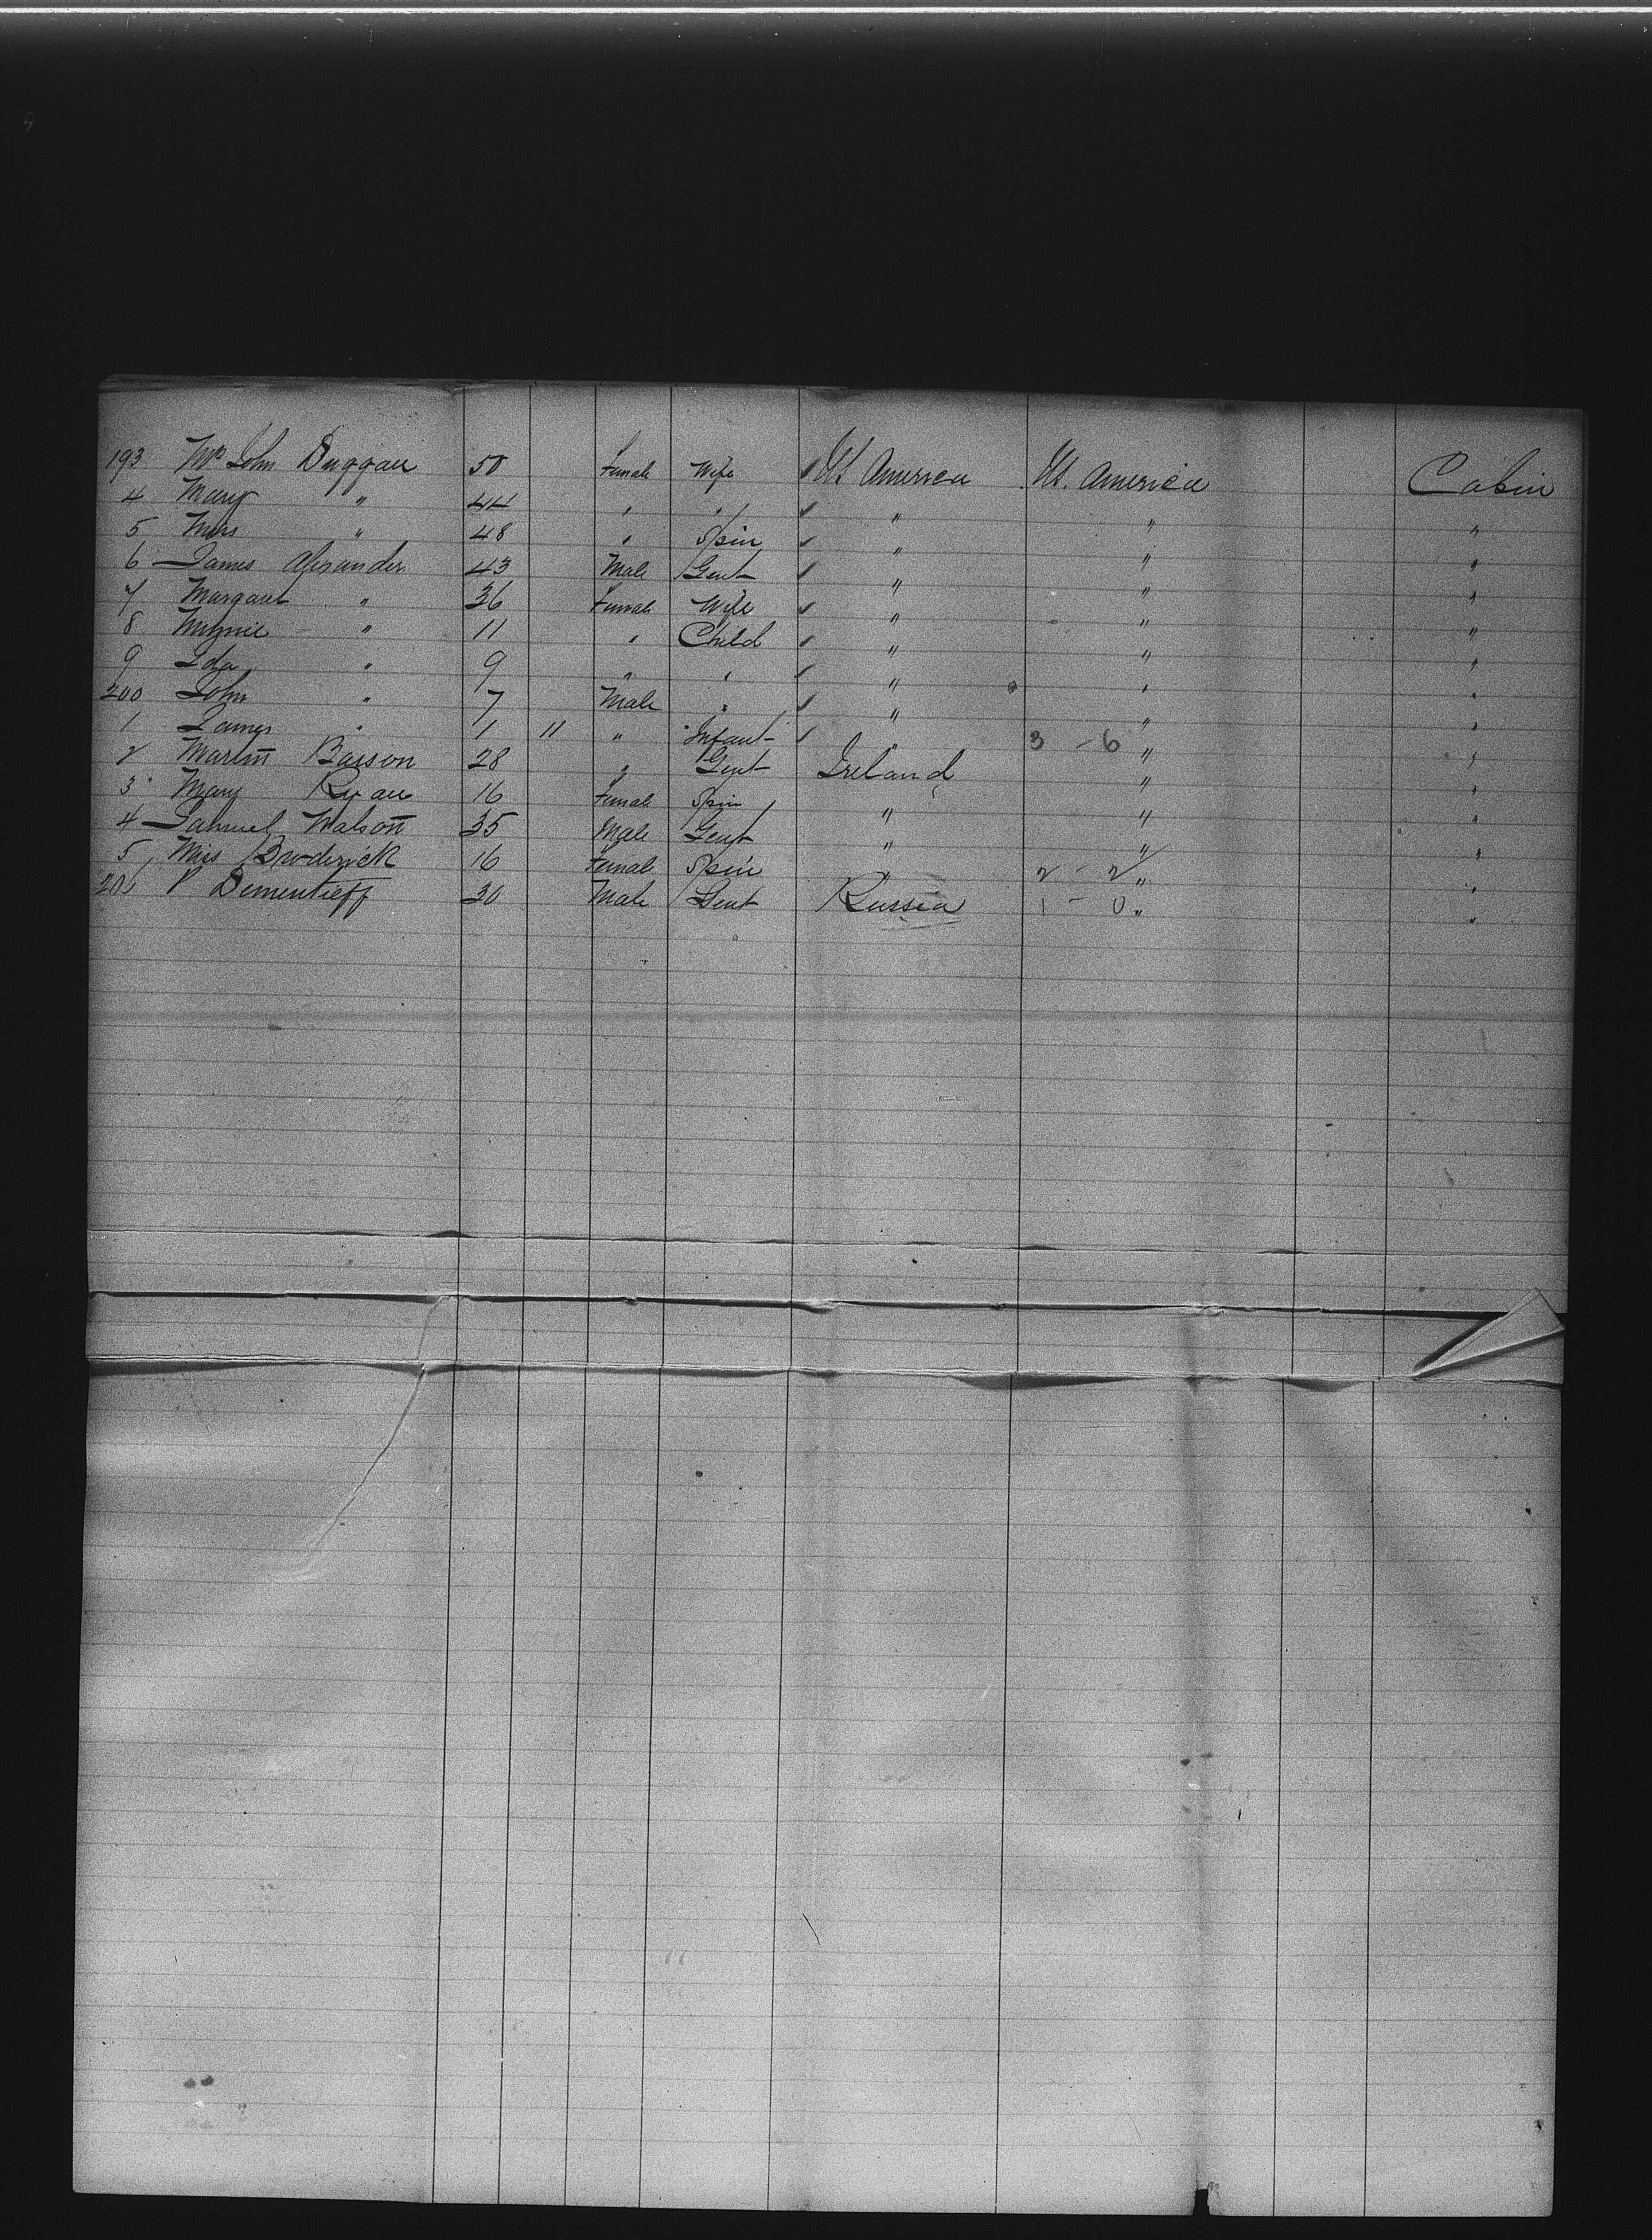 193 Mrs John Duggan 50 Female Wife ✓ U.S. America U.S. America Cabin
4 Mary " 44 " " ✓ " " "
5 Miss " 48 " Spin ✓ " " "
6 James Alexander 43 Male Gent ✓ " " "
7 Margaret " 36 Female Wife ✓ " " "
8 Minnie " 11 " Child ✓ " " "
9 Ida " 9 " " ✓ " " "
200 John " 7 Male " ✓ " " "
1 James " 1 11 " Infant ✓ " 3 - 6 " "
2 Martin 28 " Gent Ireland " "
3 Mary Ryan 16 Female Spin " " "
4 Samuel Watson 35 Male Gent " " "
5 Miss Broderick 16 Female Spin " 2 - 2 " "
206 P Dementieff 30 Male Gent Russia 1 - 0 " "